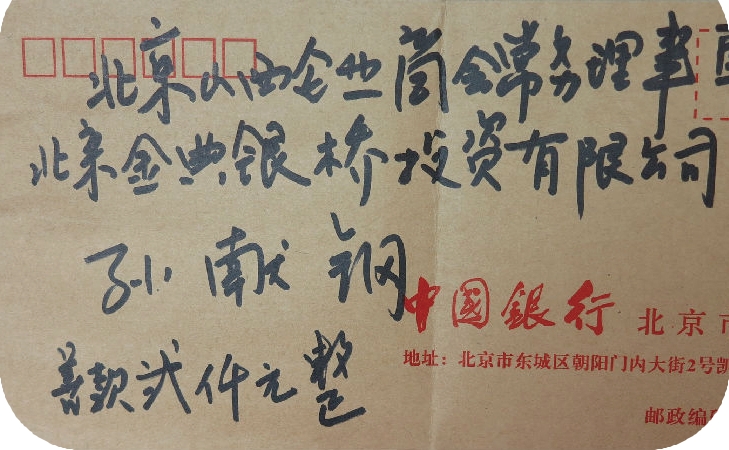 北京山西企业商会常务理事
北京金典银桥投资有限公司
孙献钢
中国银行 北京市
地址：北京市东城区朝阳门内大街2号凯
善款贰仟元整
邮政编